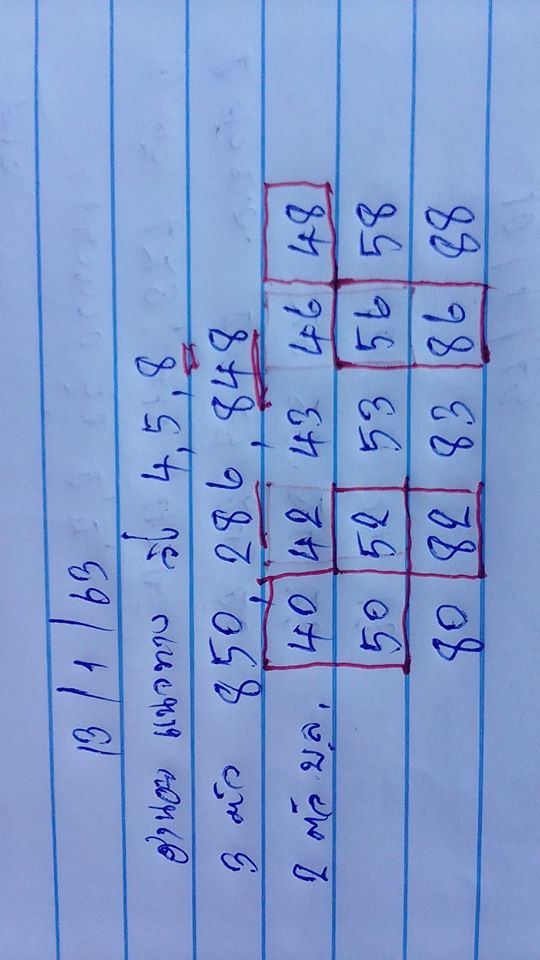 13 / 1 / 63
ฮานอย แนวทาง วิ่ง 4, 5, 8
3 ตัว 850, 286, 848
2 ตัว บ,ล. 40 42 43 46 48
50 52 53 56 58
80 82 83 86 88